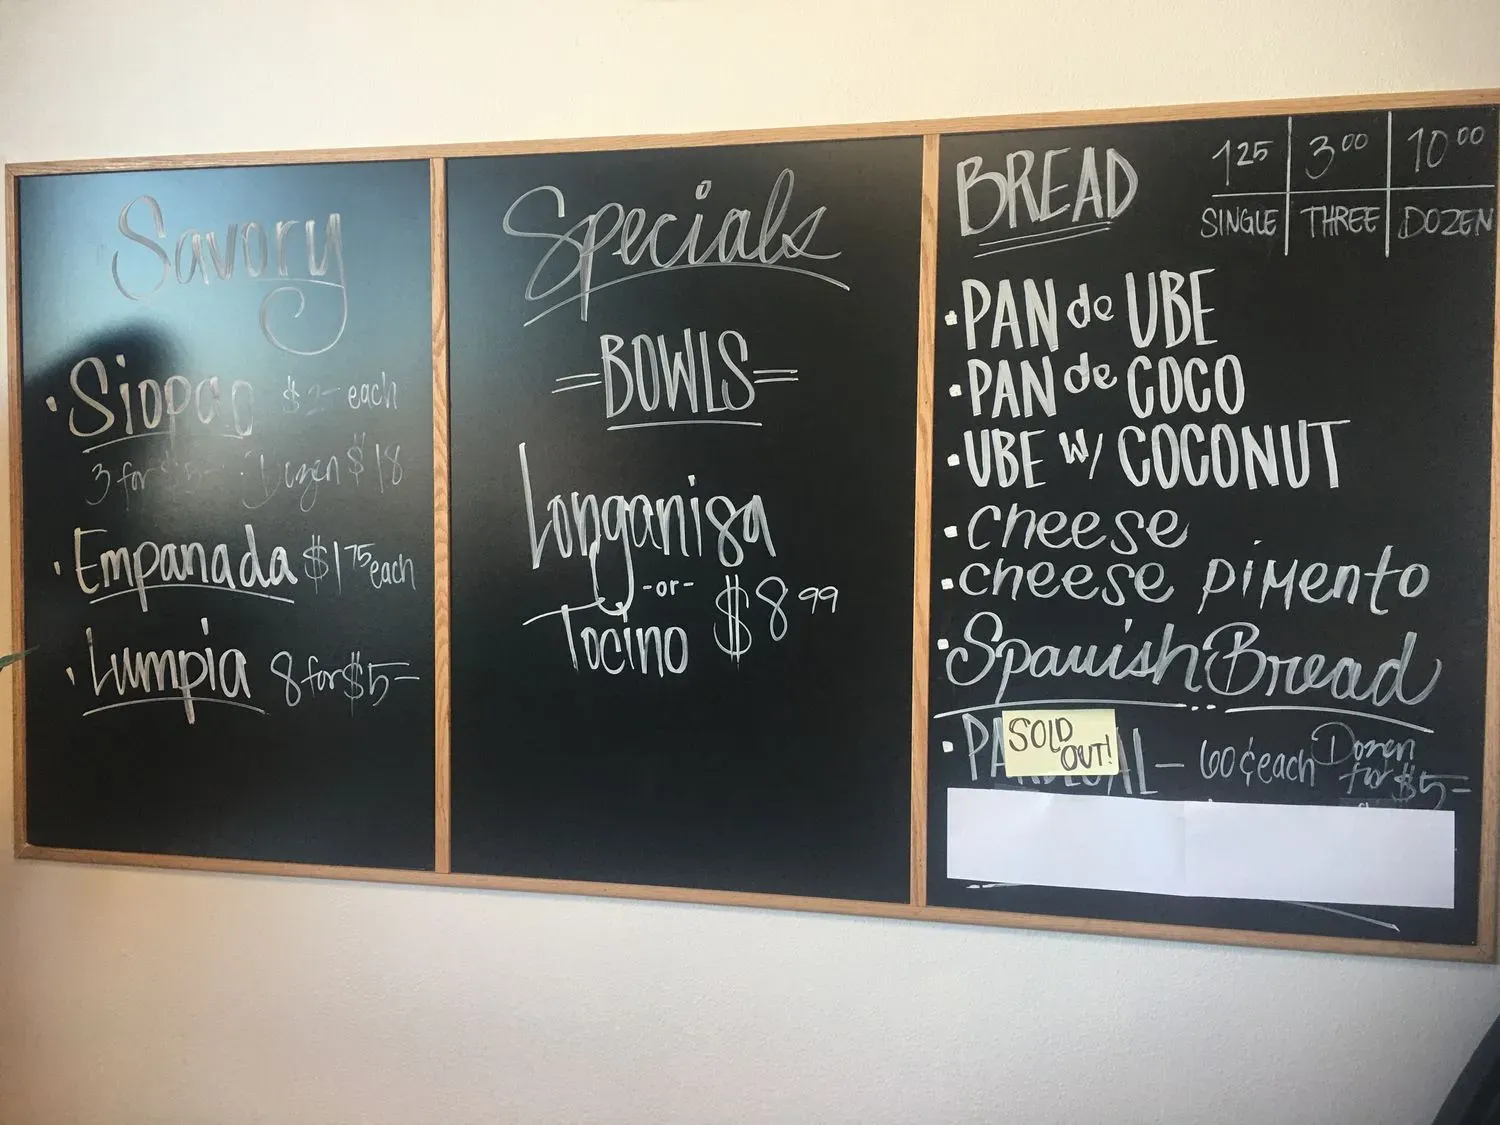 Savory
· Siopao $2- each
3 for $5- · Dozen $18
· Empanada $1 75 each
· Lumpia 8 for $5-
Specials
=BOWLS=
Longanisa
-or-
Tocino $8 99
BREAD
1 25 3 00 10 00
SINGLE THREE DOZEN
· PAN de UBE
· PAN de COCO
· UBE w/ COCONUT
· cheese
· cheese pimento
· Spanish Bread
SOLD OUT!
· 60¢ each Dozen for $5-